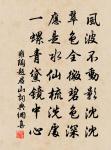 風波不動影沈沈
翠色全微碧色深
應是水仙梳洗處
一螺青黛鏡中心
雍陶題君山詞典網書